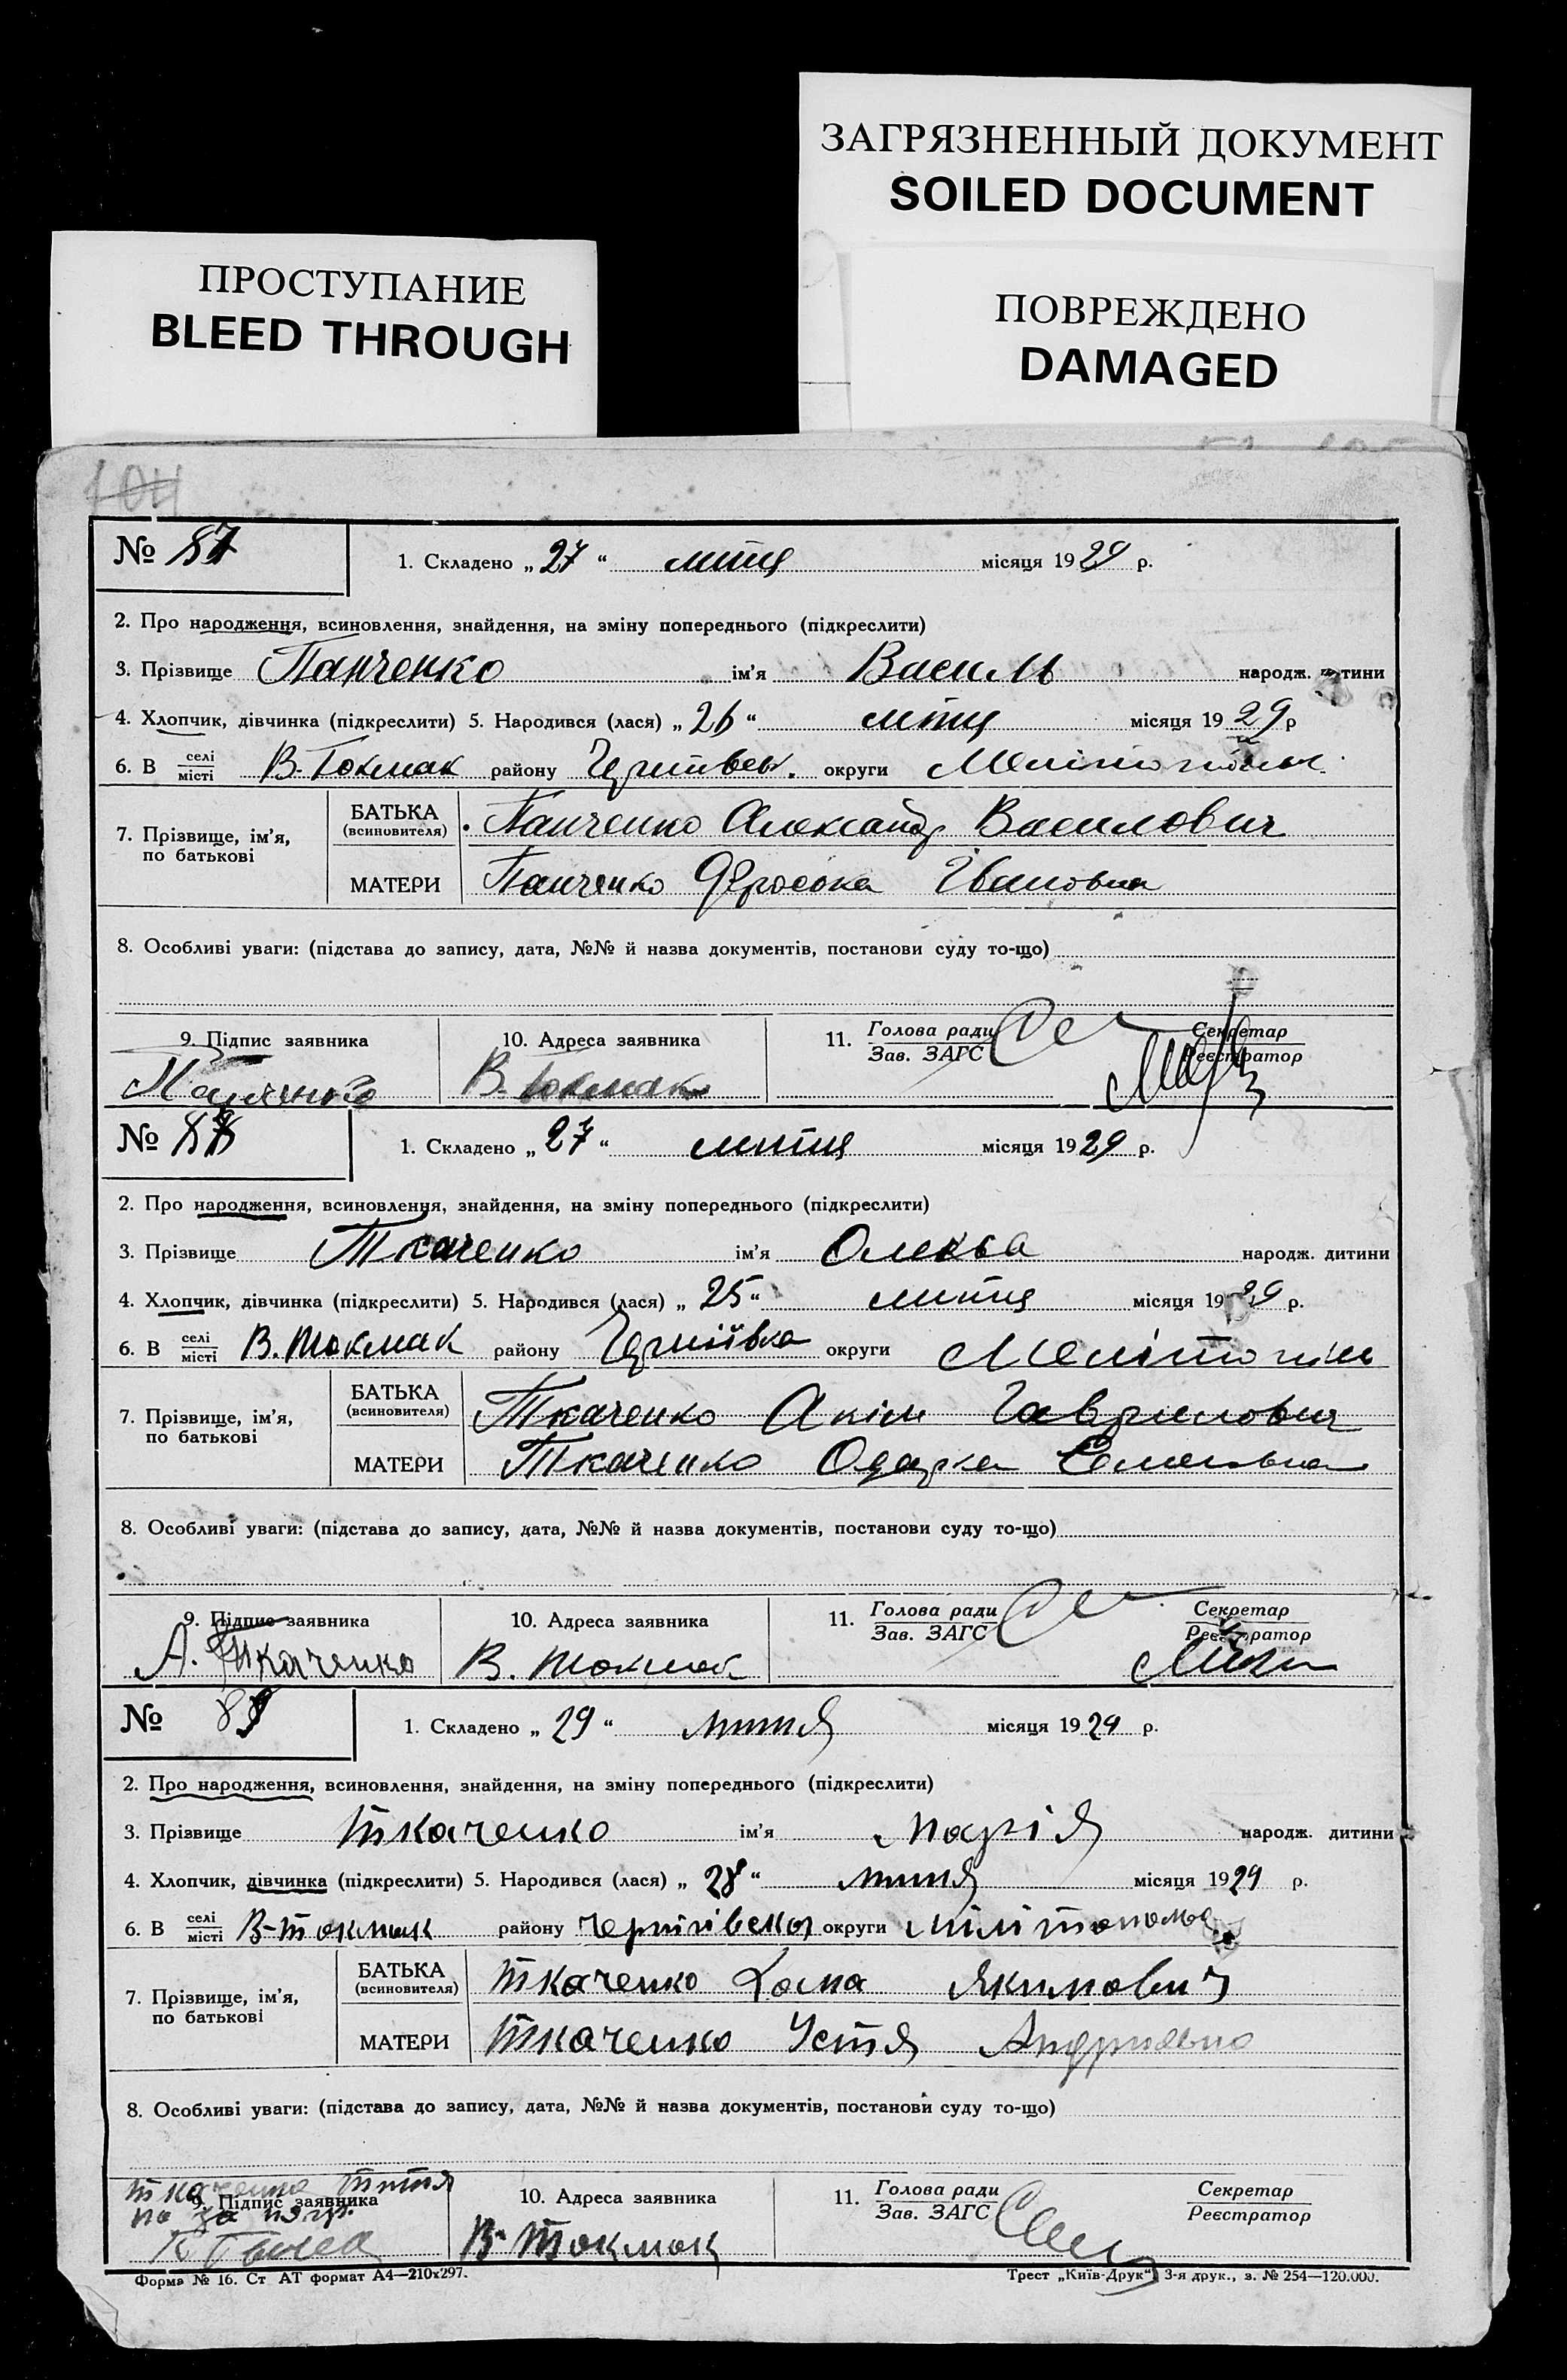 ЗАГРЯЗНЕННЫЙ ДОКУМЕНТ
SOILED DOCUMENT
ПРОСТУПАНИЕ
BLEED THROUGH
ПОВРЕЖДЕНО
DAMAGED
104
№ 87 1. Складено „ 27 “ липця місяця 1929 р.
2. Про народження, всиновлення, знайдення, на зміну попереднього (підкреслити)
3. Прізвище Панченко ім'я Василь народж. дитини
4. Хлопчик, дівчинка (підкреслити) 5. Народився (лася) „ 26 “ липця місяця 1929 р
6. В селі місті В. Токмак району округи
7. Прізвище, ім'я, по батькові
БАТЬКА (всиновителя) Панченко Александр Василович
МАТЕРИ Панченко Івановна
8. Особливі уваги: (підстава до запису, дата, №№ й назва документів, постанови суду то-що)
9. Підпис заявника 10. Адреса заявника 11. Голова ради Зав. ЗАГС Секретар Реєстратор
Панченко В. Токмак
№ 88 1. Складено „ 27 “ липця місяця 1929 р.
2. Про народження, всиновлення, знайдення, на зміну попереднього (підкреслити)
3. Прізвище Ткаченко ім'я Олекса народж. дитини
4. Хлопчик, дівчинка (підкреслити) 5. Народився (лася) „ 25 “ липця місяця 1929 р.
6. В селі місті В. Токмак району округи
7. Прізвище, ім'я, по батькові
БАТЬКА (всиновителя) Ткаченко Акім Гаврилович
МАТЕРИ Ткаченко Одарка
8. Особливі уваги: (підстава до запису, дата, №№ й назва документів, постанови суду то-що)
9. Підпис заявника 10. Адреса заявника 11. Голова ради Зав. ЗАГС Секретар Реєстратор
А. Ткаченко В. Токмак
№ 89 1. Складено „ 29 “ липня місяця 1929 р.
2. Про народження, всиновлення, знайдення, на зміну попереднього (підкреслити)
3. Прізвище Ткаченко ім'я Марія народж. дитини
4. Хлопчик, дівчинка (підкреслити) 5. Народився (лася) „ 28 “ липня місяця 1929 р.
6. В селі місті В-токмак району округи
7. Прізвище, ім'я, по батькові
БАТЬКА (всиновителя) Ткаченко Хома Якимович
МАТЕРИ Ткаченко Устя
8. Особливі уваги: (підстава до запису, дата, №№ й назва документів, постанови суду то-що)
Ткаченко
9. Підпис заявника 10. Адреса заявника 11. Голова ради Зав. ЗАГС Секретар Реєстратор
В-Токмак
Форма № 16. Ст АТ формат А4—210x297. Трест „Київ-Друк“, 3-я друк., з. № 254—120.000.